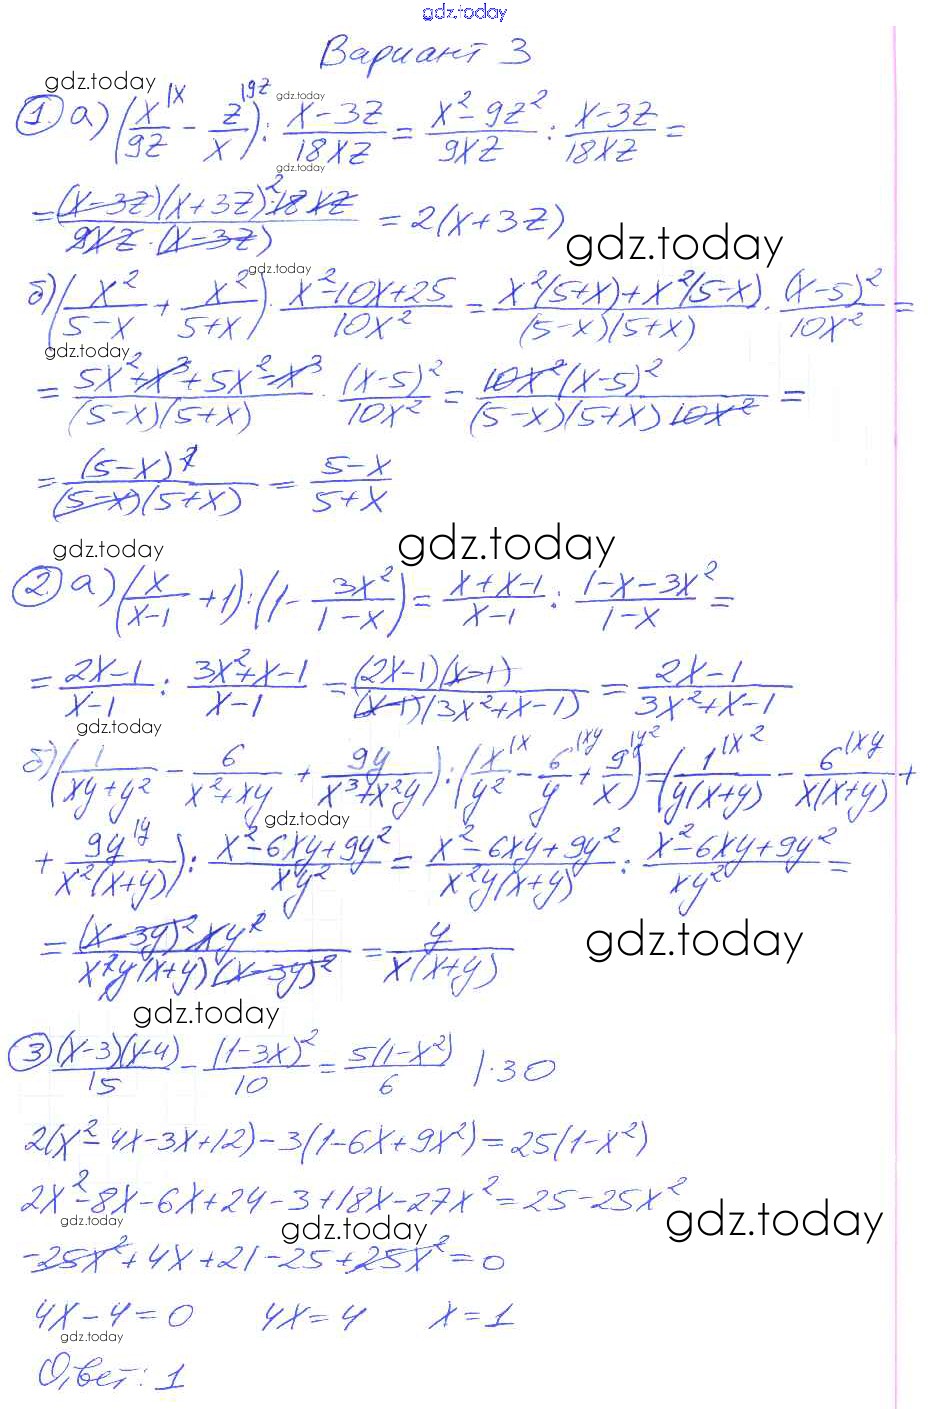 gdz.today
Вариант 3
gdz.today
1. а) (x/9z |x - z/x |9z) : (x-3z)/(18xz) = (x²-9z²)/(9xz) : (x-3z)/(18xz) =
gdz.today
gdz.today
= ((x-3z)(x+3z)·18xz)/(9xz·(x-3z)) 2 = 2(x+3z)
gdz.today
gdz.today
б) (x²/(5-x) + x²/(5+x)) · (x²-10x+25)/(10x²) = (x²(5+x)+x²(5-x))/((5-x)(5+x)) · (x-5)²/(10x²) =
gdz.today
= (5x²+x³+5x²-x³)/((5-x)(5+x)) · (x-5)²/(10x²) = (10x²(x-5)²)/((5-x)(5+x)10x²) =
= (5-x)²/((5-x)(5+x)) = (5-x)/(5+x)
gdz.today
gdz.today
2. а) (x/(x-1) + 1) : (1 - 3x²/(1-x)) = (x+x-1)/(x-1) : (1-x-3x²)/(1-x) =
= (2x-1)/(x-1) : (3x²+x-1)/(x-1) = ((2x-1)(x-1))/((x-1)(3x²+x-1)) = (2x-1)/(3x²+x-1)
gdz.today
б) (1/(xy+y²) - 6/(x²+xy) + 9y/(x³+x²y)) : (x/y² |x - 6/y |xy + 9/x |y²) = (1/(y(x+y)) |x² - 6/(x(x+y)) |xy +
gdz.today
+ 9y/(x²(x+y)) |y) : (x²-6xy+9y²)/(xy²) = (x²-6xy+9y²)/(x²y(x+y)) : (x²-6xy+9y²)/(xy²) =
= ((x-3y)²xy²)/(x²y(x+y)(x-3y)²) = y/(x(x+y))
gdz.today
gdz.today
3 ((x-3)(x-4))/15 - (1-3x)²/10 = 5(1-x²)/6 |·30
2(x²-4x-3x+12)-3(1-6x+9x²)=25(1-x²)
2x²-8x-6x+24-3+18x-27x²=25-25x²
gdz.today
gdz.today
gdz.today
-25x²+4x+21-25+25x²=0
4x-4=0 4x=4 x=1
gdz.today
Ответ: 1